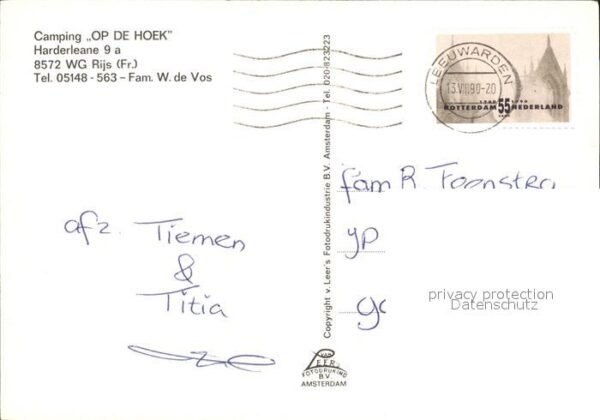 Camping „OP DE HOEK"
Harderleane 9 a
8572 WG Rijs (Fr.)
Tel. 05148 - 563 – Fam. W. de Vos
LEEUWARDEN
13.VII.90-20
ROTTERDAM 55 NEDERLAND
Copyright v. Leer's Fotodrukindustrie B.V. Amsterdam - Tel. 020-823223
fam R. Toonstra
afz. Tiemen
&
Titia
yp
privacy protection
Datenschutz
VAN
LEER's
FOTODRUKIND
B.V.
AMSTERDAM